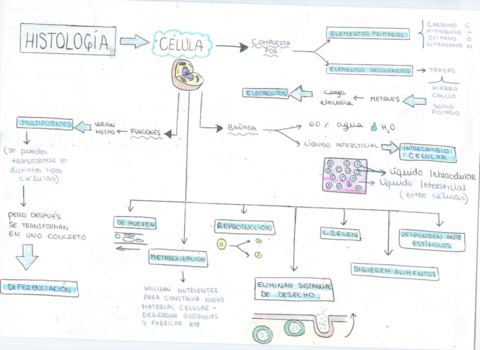 HISTOLOGÍA
CÉLULA
COMPUESTA
POR
ELEMENTOS PRIMARIOS
CARBONO C
HIDRÓGENO H
OXÍGENO O
NITRÓGENO N
ELEMENTOS SECUNDARIOS
TRAZAS
HIERRO
CALCIO
SODIO
POTASIO
METALES
Carga
eléctrica
ELECTROLITOS
MULTIPOTENTES
VARÍAN
MUCHO
FUNCIONES
BAÑADA
60% agua
H₂O
LÍQUIDO INTERSTICIAL
INTERCAMBIO
CELULAR
Líquido Intracelular
Líquido Intersticial
(entre células)
(Se pueden
transformar en
distintos tipos
células)
PERO DESPUÉS
SE TRANSFORMAN
EN UNO CONCRETO
DIFERENCIACIÓN
SE MUEVEN
METABOLIZACIÓN
UTILIZAN NUTRIENTES
PARA CONSTRUIR NUEVO
MATERIAL CELULAR -
DEGRADAR SUSTANCIAS
Y FABRICAR ATP
REPRODUCCIÓN
ELIMINAN SUSTANCIAS
DE DESECHO
CRECEN
DIGIEREN ALIMENTOS
RESPONDEN ANTE
ESTÍMULOS